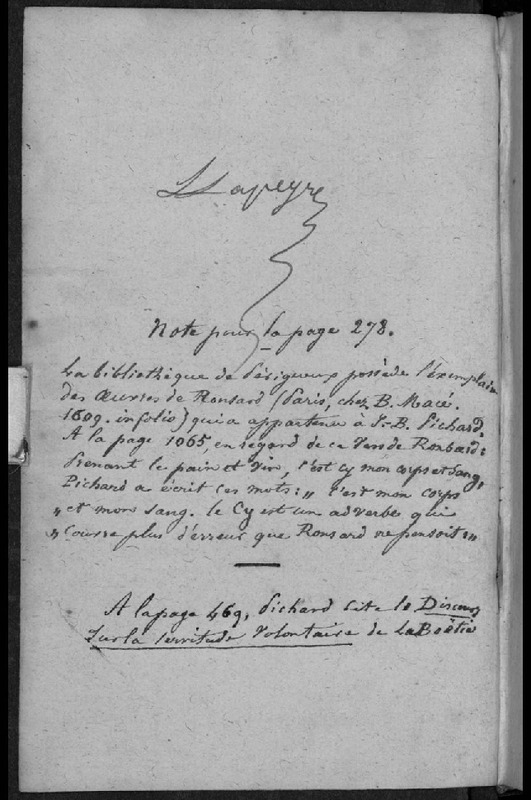 Lapeyre
Note pour la page 278.
La bibliothèque de Périgueux possède l'exemplaire
des Œuvres de Ronsard (Paris, chez B. Macé.
1609. in folio) qui a appartenu à J-B. Pichard.
A la page 1065, en regard de ce Vers de Ronsard:
Prenant le pain et Vin, c'est Cy mon corps et Sang,
Pichard a écrit ces mots: „ C'est mon corps
„ et mon Sang. le Cy est un adverbe qui
„ Couvre plus d'erreur que Ronsard ne pensoit „
A la page 469, Pichard cite le Discours
Sur la Servitude Volontaire de La Boëtie